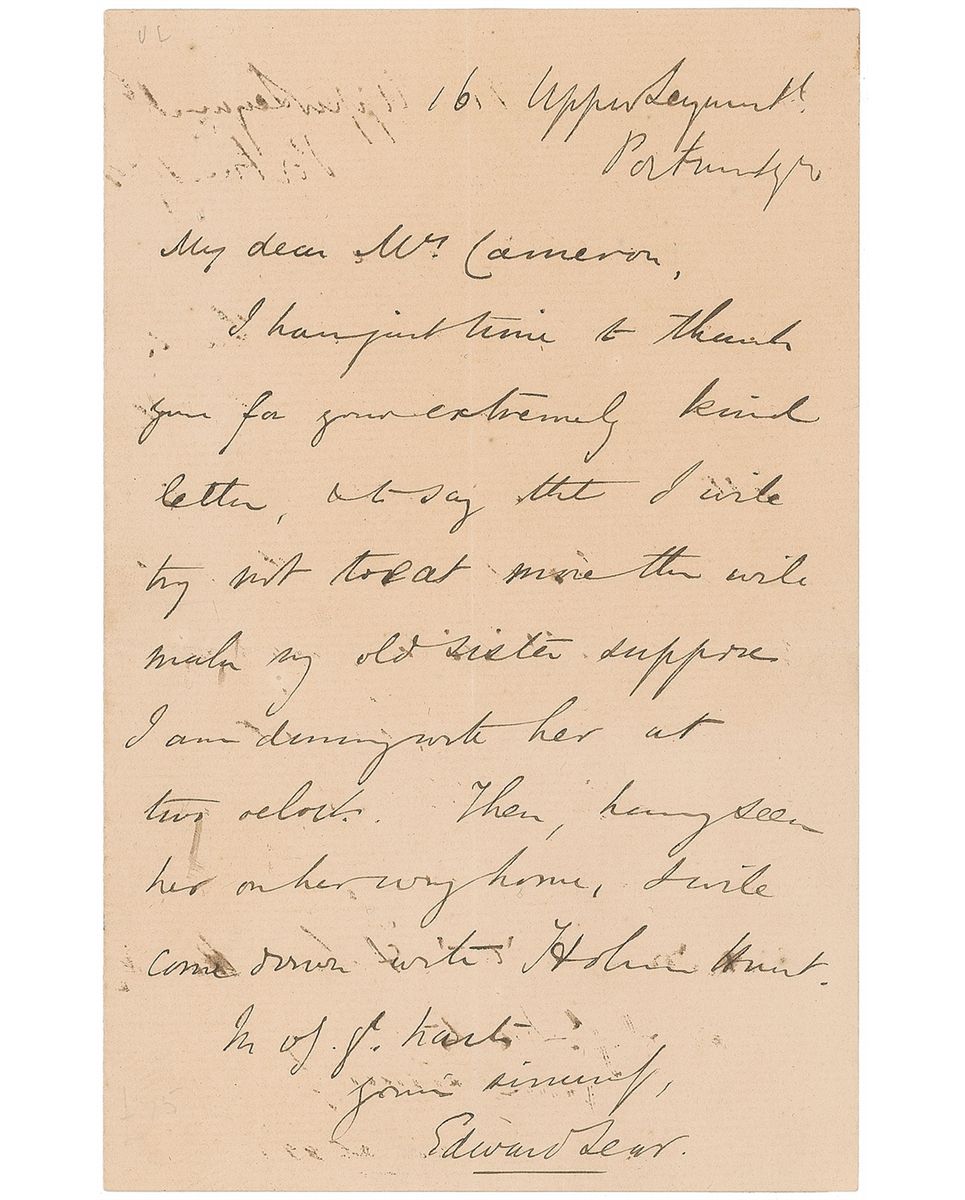 16. Upper Seymour St.
Portman Sqre
My dear Mrs. Cameron,
I have just time to thank
you for your extremely kind
letter, & to say that I will
try not to eat more than will
make my old sister suppose
I am dining with her at
two o'clock. Then, having seen
her on her way home, I will
come down with Holman Hunt.
In haste
Yours sincerely,
Edward Lear.